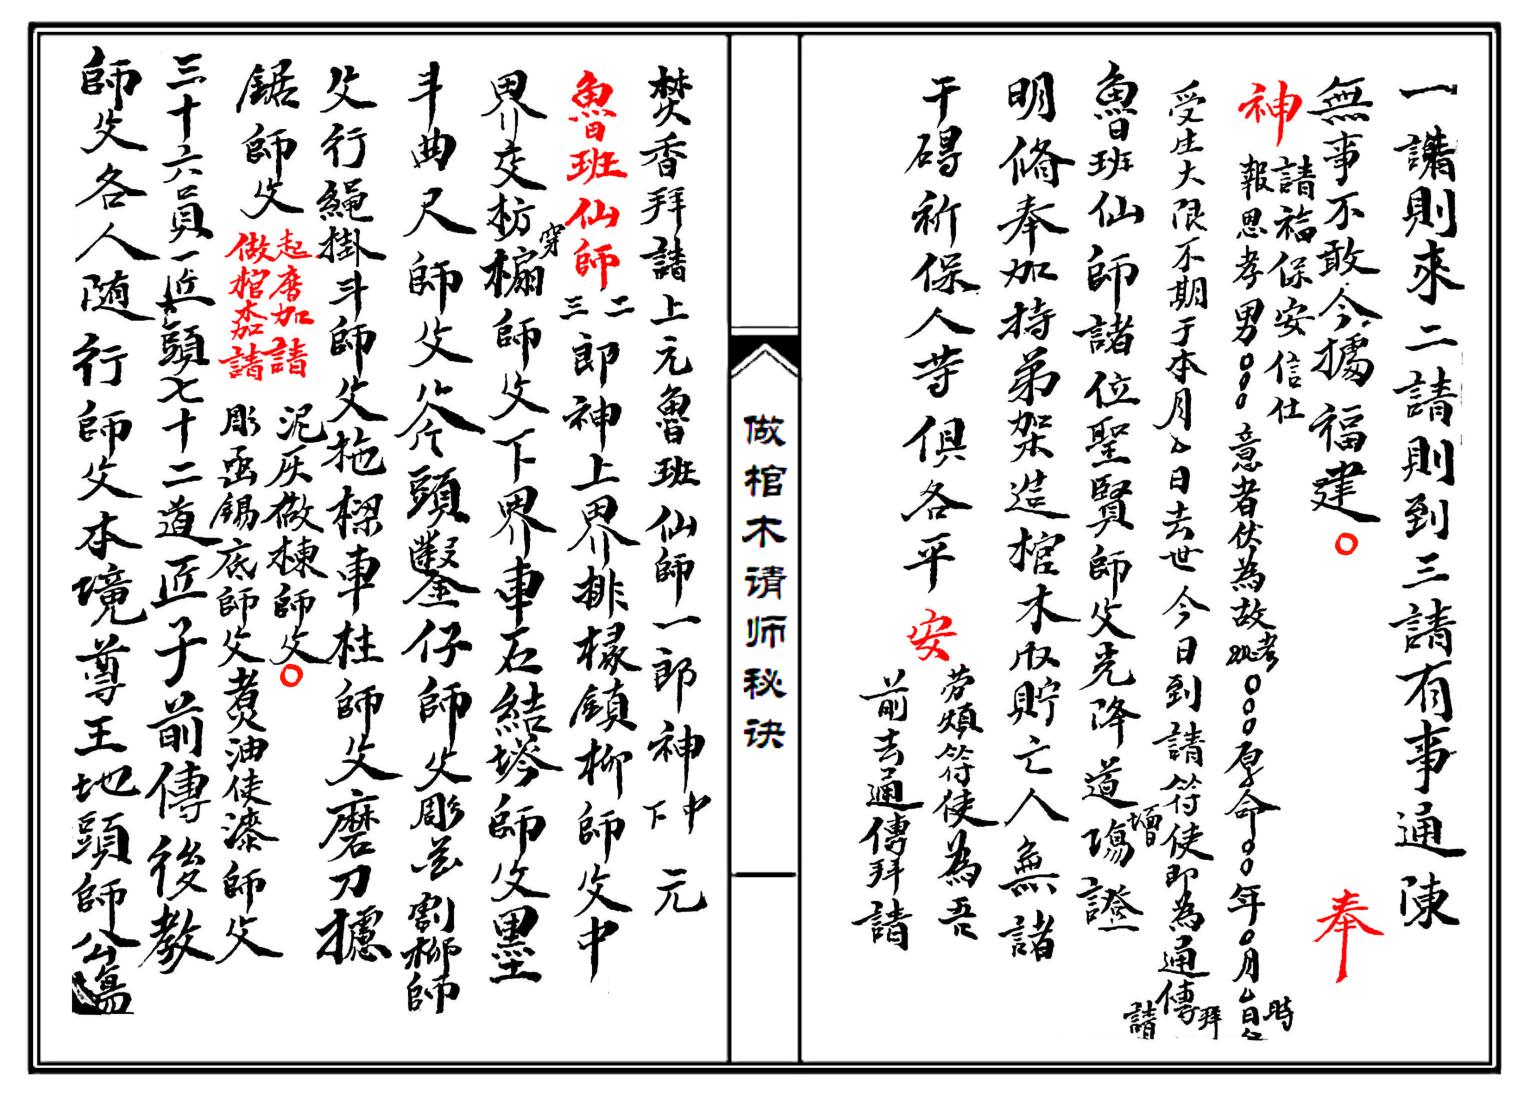 一請則來二請則到三請有事通陳
無事不敢今據福建○奉
神請福保安信仕
報恩孝男○○○意者伏為故考妣○○○原命○○年○月○日時
受生大限不期于本月△日去世今日到請符使即為通傳拜請
魯班仙師諸位聖賢師父光降道場增證
明修奉加持弟架造棺木收貯亡人無諸
干碍祈保人等俱各平安
勞煩符使為吾
前去通傳拜請
做棺木请师秘诀
焚香拜請上元魯班仙師一郎神中下元
魯班仙師二三郎神上界排椽鎮柳師父中
界交枋穿榍師父下界車石結塔師父墨
斗曲尺師父斧頭鑿仔師父彫花割柳師
父行繩掛斗師父拖樑車柱師父磨刀據
鋸師父
起厝加請
做棺木加請
泥灰做棟師父○
彫函錫底師父煮油使漆師父
三十六員匠頭七十二道匠子前傳後教
師父各人随行師父本境尊王地頭師公